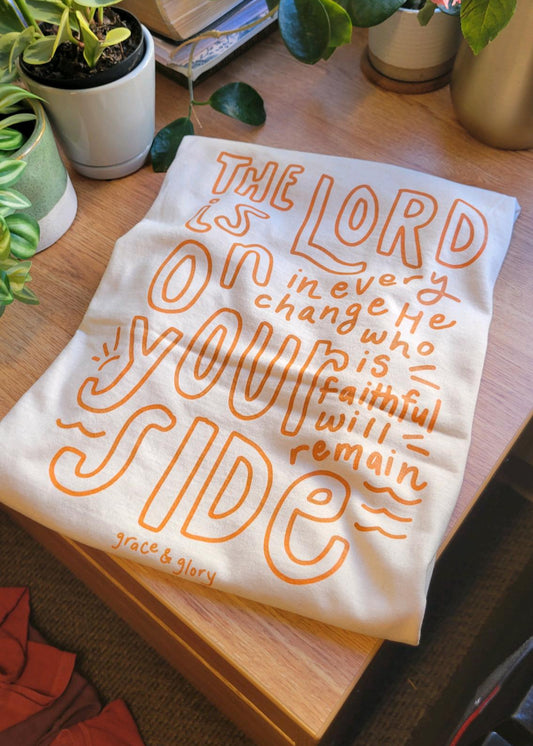 THE LORD
is on
your
SIDe
in every
change He
who
is
faithful
will
remain
grace & glory